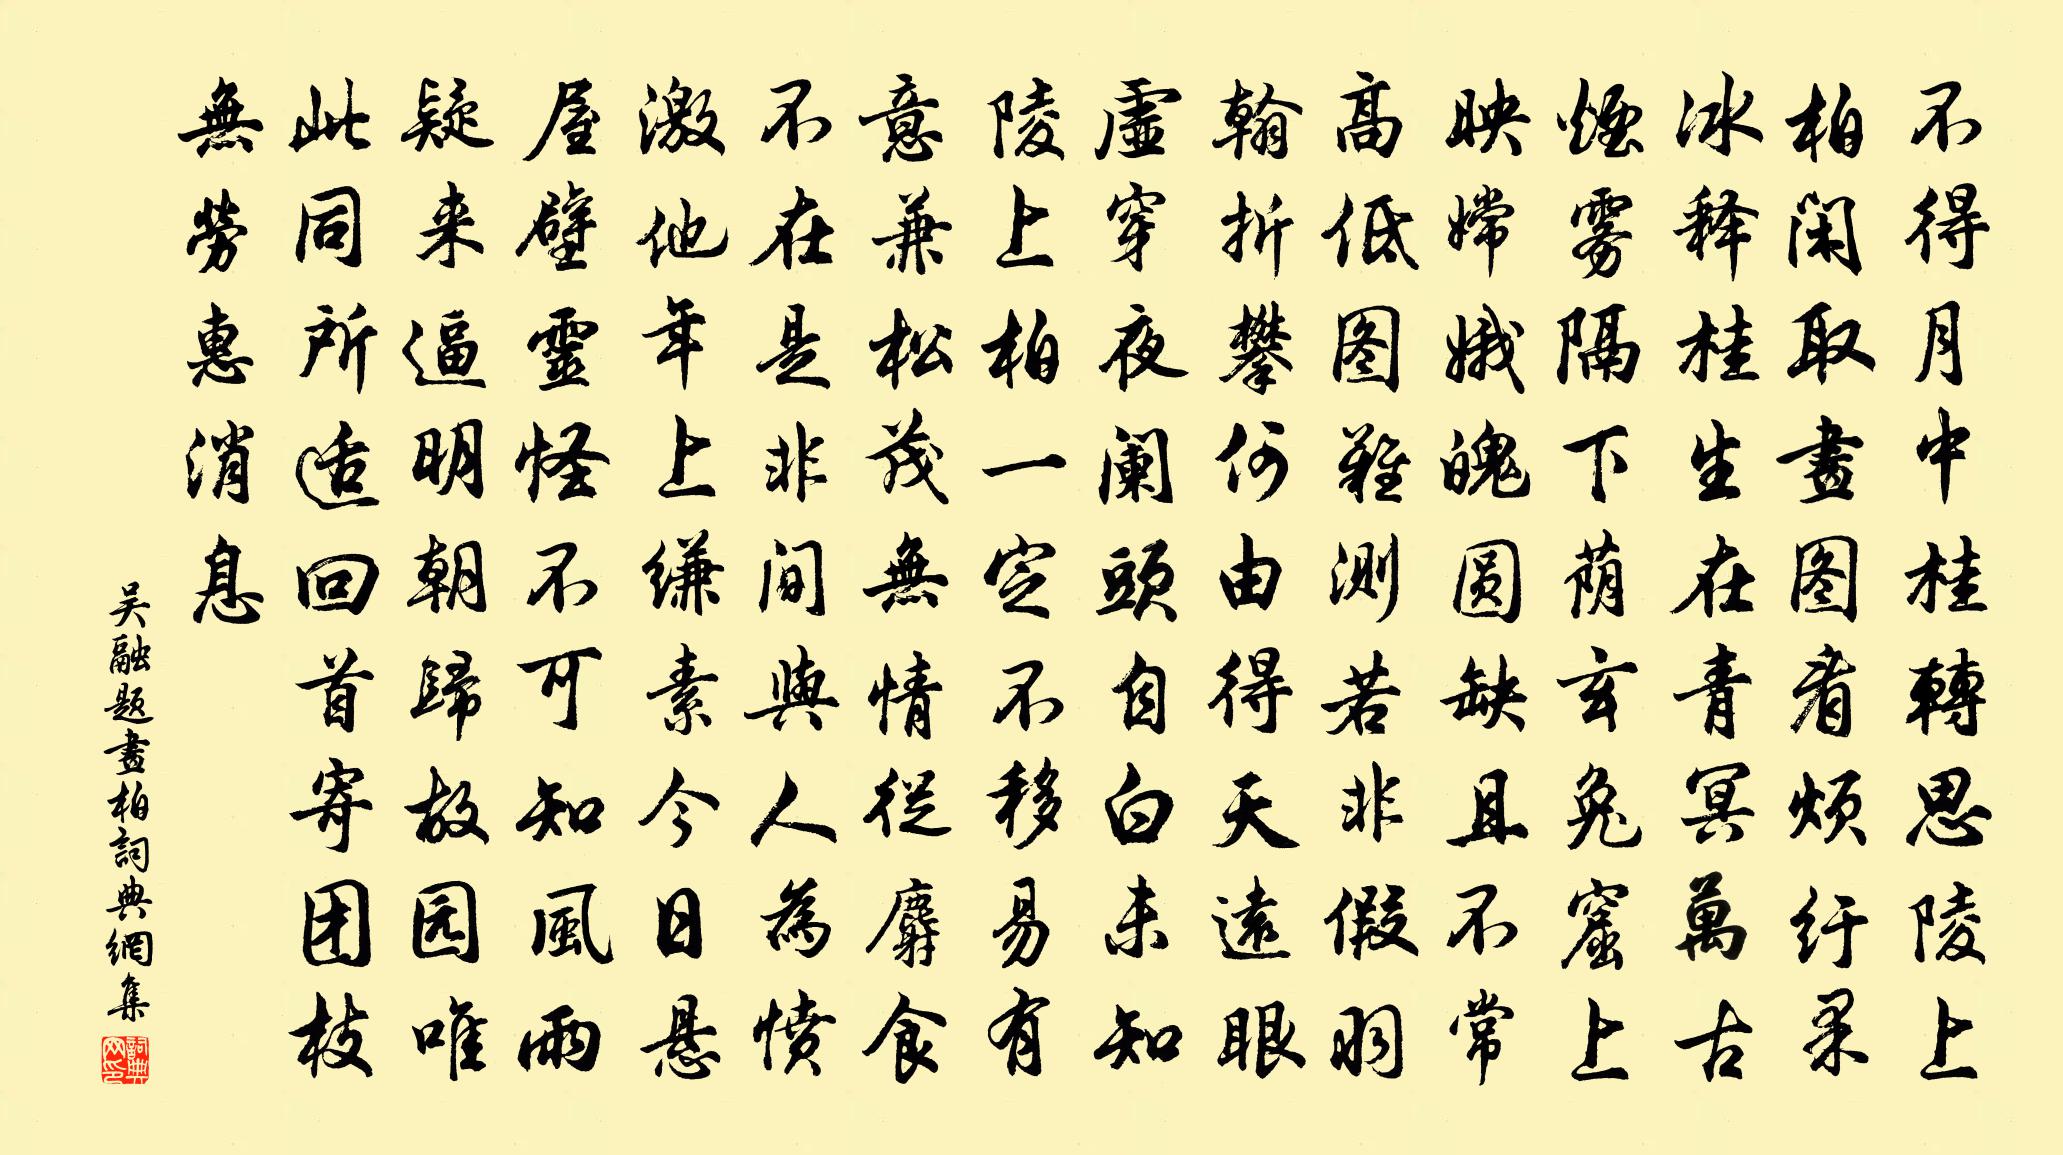 不得月中桂轉思陵上
柏闲取畫图看烦纡果
冰释桂生在青冥萬古
煙雾隔下荫玄兔窟上
映嫦娥魄圆缺且不常
高低图難测若非假羽
翰折攀何由得天遠眼
虛穿夜阑頭自白未知
陵上柏一定不移易有
意兼松茂無情從麝食
不在是非间與人為愤
激他年上缣素今日悬
屋壁靈怪不可知風雨
疑来逼明朝歸故园唯
此同所适回首寄团枝
無勞惠消息
吴融题畫柏詞典網集
詞典网印